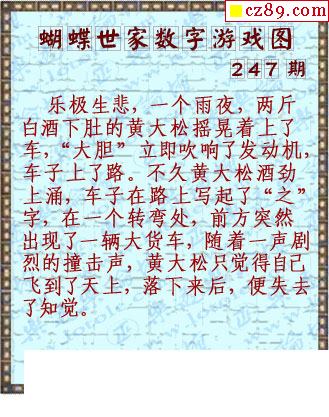 cz89.com
蝴蝶世家数字游戏图
247 期
乐极生悲，一个雨夜，两斤
白酒下肚的黄大松摇晃着上了
车，“大胆”立即吹响了发动机，
车子上了路。不久黄大松酒劲
上涌，车子在路上写起了“之”
字，在一个转弯处，前方突然
出现了一辆大货车，随着一声剧
烈的撞击声，黄大松只觉得自己
飞到了天上，落下来后，便失去
了知觉。